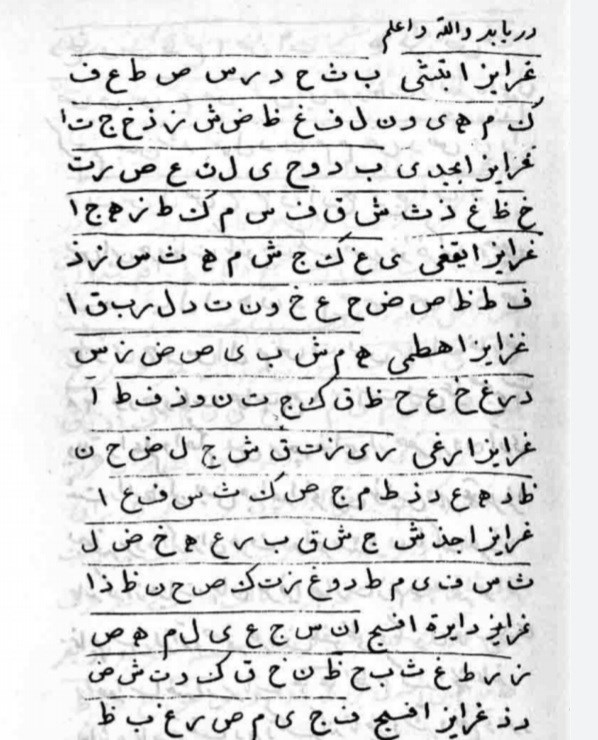 دریابد والله و اعلم
غرایز ابتثی ب ث ح د ر س ص ط ع ف
ک م ه ی و ن ل ق غ ظ ض ش ز ذ خ ج ت ا
غرایز ابجدی ب د و ح ی ل ن ع ص ر ت
خ ظ غ ذ ث ش ق ف س م ک ط ز ه ج ا
غرایز ایقغی ی غ ک ج ش م ه ث س ز ذ
ف ط ظ ص ض ح ع خ و ن ت د ل ر ب ق ا
غرایز اهطمی ه م ش ب ی ص ض ز س
د ر غ خ ع ح ظ ق ک ج ث ن و ذ ف ط ا
غرایز ارغی ر ی ز ت ق ش ج ل ض ح ن
ظ د ه ع د ذ ط م ج ص ک ث س ف غ ا
غرایز اجذش ج ش ق ب ر ع ه خ ض ل
ث س ف ی م ط د و غ ز ت ک ص ح ن ظ ذ ا
غرایز دایره افسج ا ن س ج ع ی ل م ه ص
ز ر ط غ ث ب ح ظ ن خ ق ک د ت ش ض
د ذ غرایز افسج ف ج ی م ص ر غ ب ظ